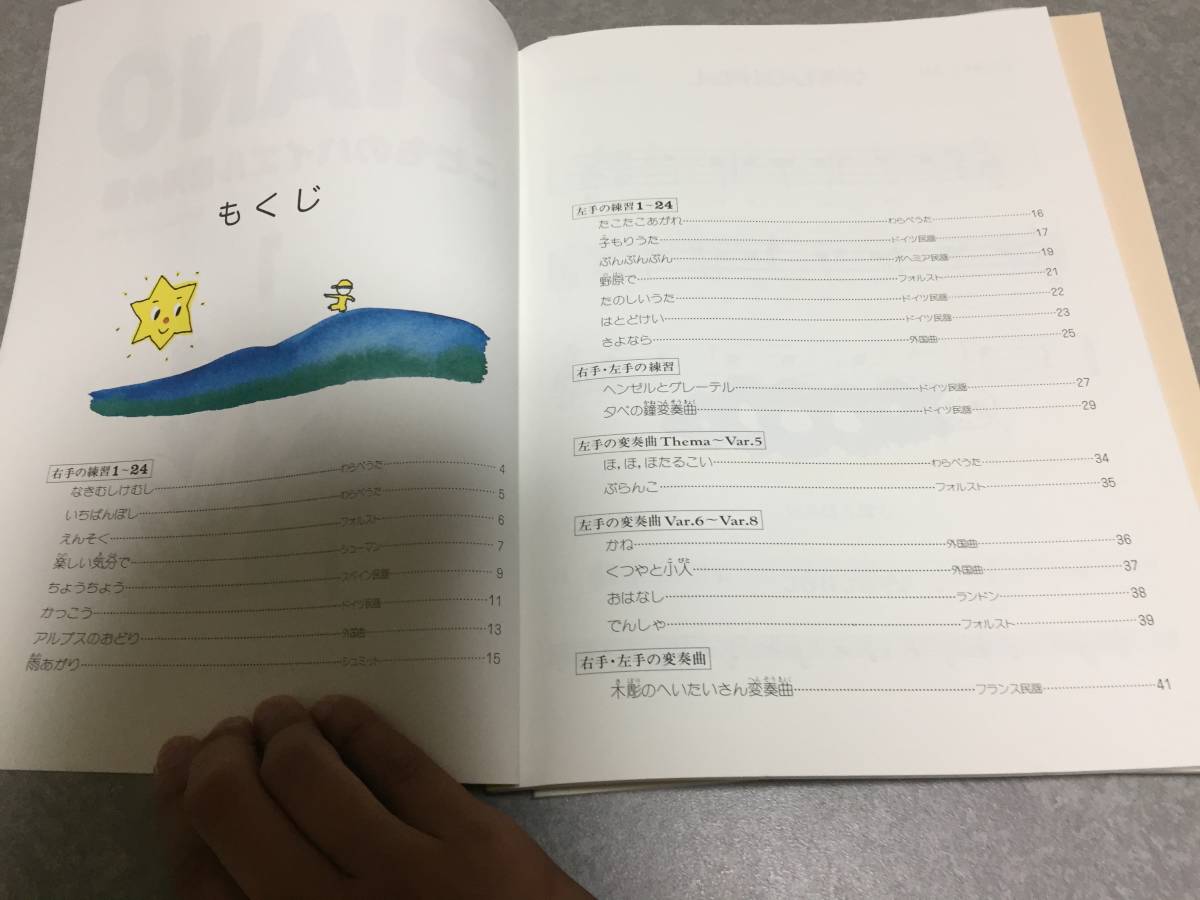 もくじ
右手の練習1~24
なきむしけむし わらべうた 4
いちばんぼし わらべうた 5
えんそく フォルスト 6
楽しい気分で シューマン 7
ちょうちょう スペイン民謡 9
かっこう ドイツ民謡 11
アルプスのおどり 外国曲 13
雨あがり シュミット 15
左手の練習1~24
たこたこあがれ わらべうた 16
子もりうた ドイツ民謡 17
ぶんぶんぶん ボヘミア民謡 19
野原で フォルスト 21
たのしいうた ドイツ民謡 22
はとどけい ドイツ民謡 23
さよなら 外国曲 25
右手・左手の練習
ヘンゼルとグレーテル ドイツ民謡 27
夕べの鐘変奏曲 ドイツ民謡 29
左手の変奏曲 Thema~Var.5
ほ,ほ,ほたるこい わらべうた 34
ぶらんこ フォルスト 35
左手の変奏曲 Var.6~Var.8
かね 外国曲 36
くつやと小人 外国曲 37
おはなし ランドン 38
でんしゃ フォルスト 39
右手・左手の変奏曲
木彫のへいたいさん変奏曲 フランス民謡 41